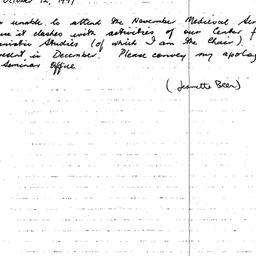 October 12, 1997
unable to attend the November Medieval Sem
it clashes with activities of our Center f
Studies (of which I am the Chair).
in December. Please convey my apolog
Seminar Office.
(Jeanette Beer)